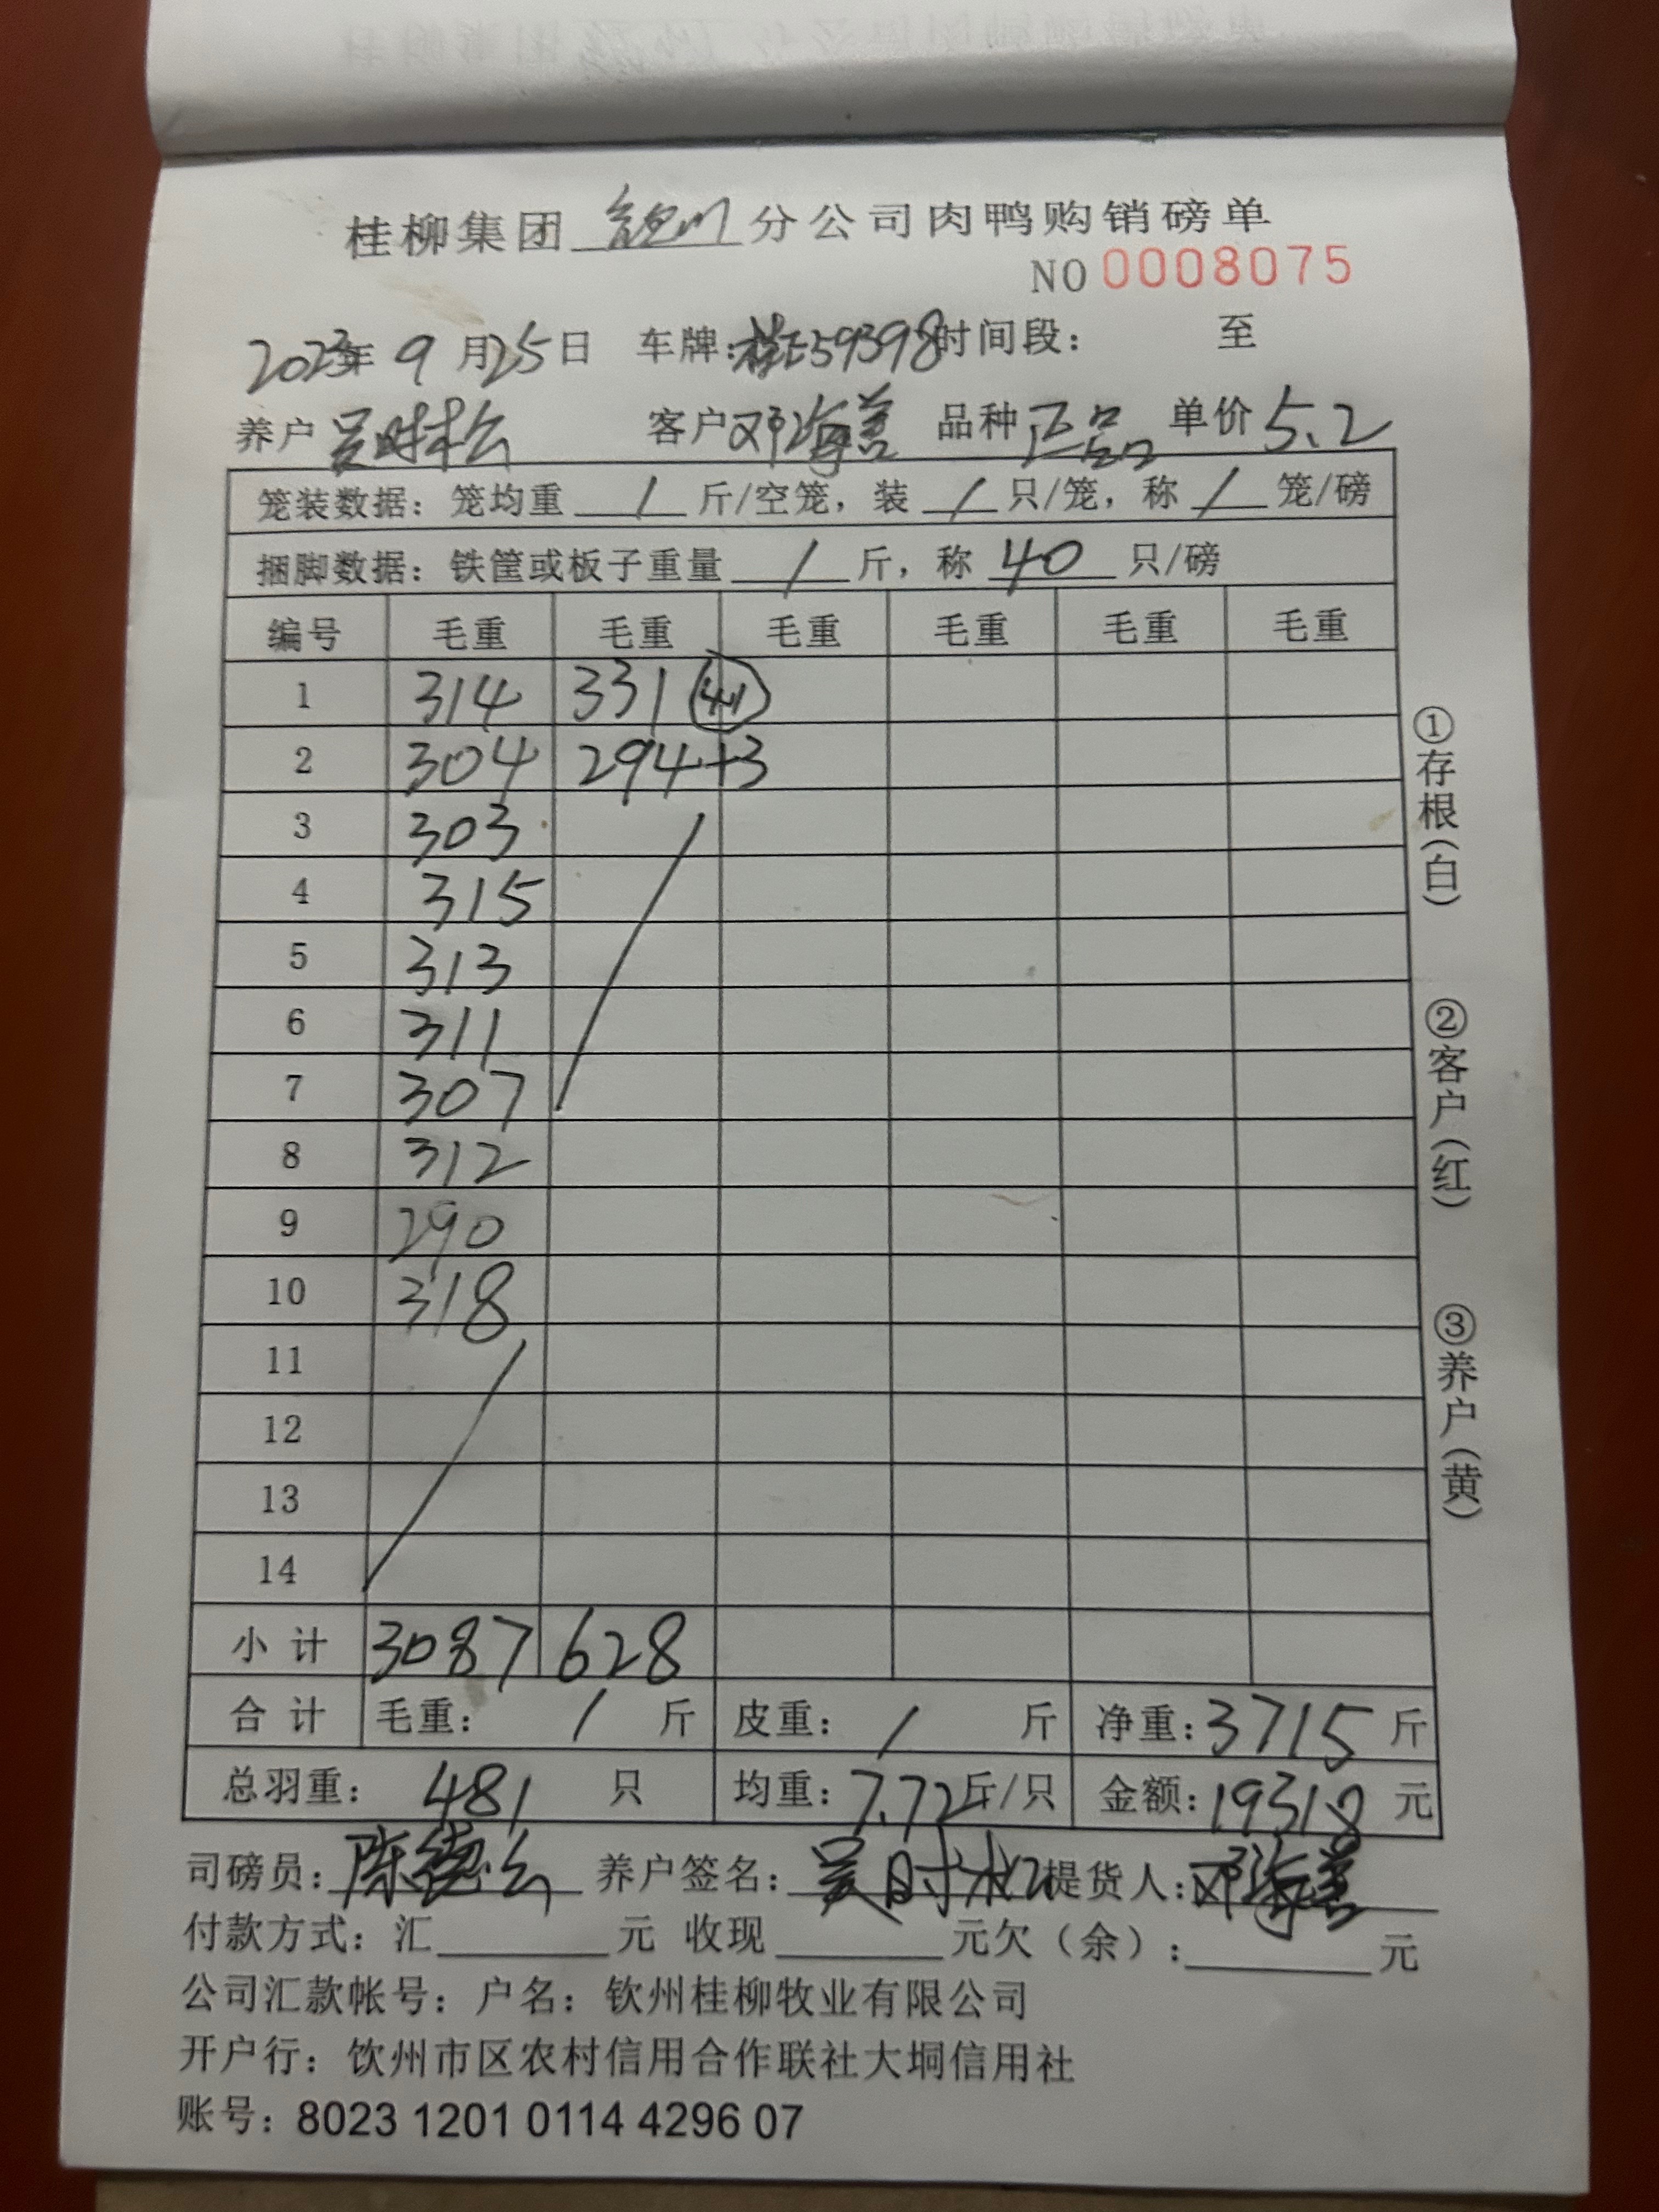 桂柳集团 钦州 分公司肉鸭购销磅单
NO 0008075
2023年 9 月 25 日 车牌: 桂E59398 时间段: 至
养户 吴时松 客户 邓海善 品种 正品 单价 5.2
笼装数据: 笼均重 / 斤/空笼, 装 / 只/笼, 称 / 笼/磅
捆脚数据: 铁筐或板子重量 / 斤, 称 40 只/磅
编号 毛重 毛重 毛重 毛重 毛重 毛重
1 314 331 (41)
2 304 294+3
3 303
4 315
5 313
6 311
7 307
8 312
9 290
10 318
11
12
13
14
小 计 3087 628
合 计 毛重: / 斤 皮重: / 斤 净重: 3715 斤
总羽重: 481 只 均重: 7.72 斤/只 金额: 19318 元
司磅员: 陈德 养户签名: 吴时松 提货人: 邓海善
付款方式: 汇 元 收现 元 欠(余): 元
公司汇款帐号: 户名: 钦州桂柳牧业有限公司
开户行: 饮州市区农村信用合作联社大垌信用社
账号: 8023 1201 0114 4296 07
①存根(白)
②客户(红)
③养户(黄)